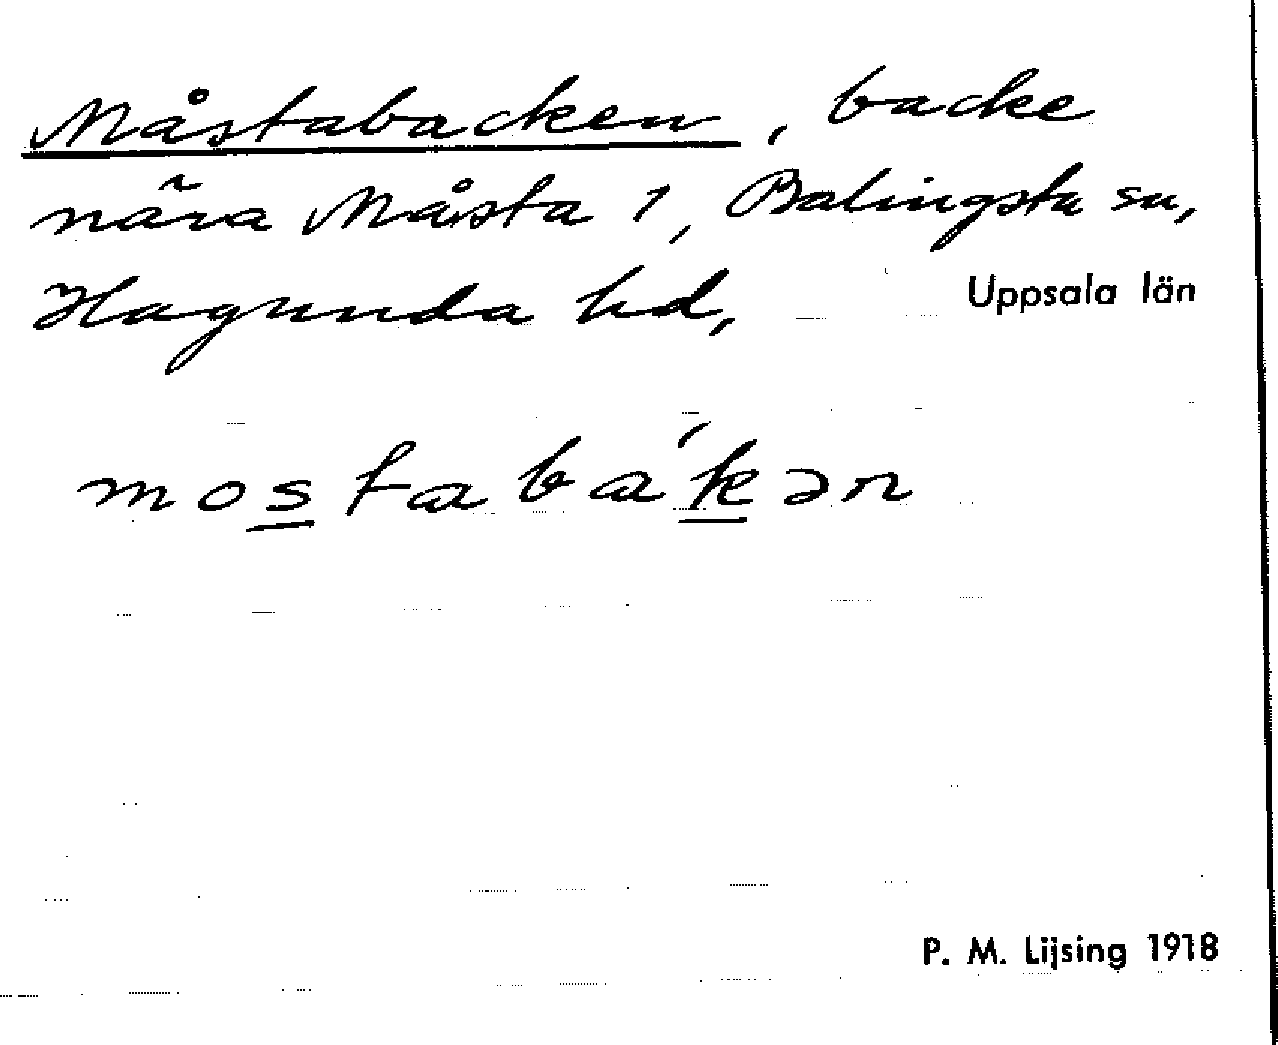 Måstabacken, backe
nära Måsta 1, Balingsta sn,
Hagunda hd, Uppsala län
mostabaˊkən
P. M. Lijsing 1918